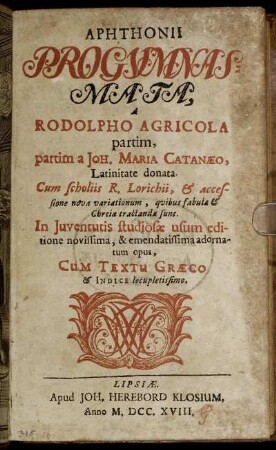 APHTHONII
PROGYMNAS-
MATA,
A
RODOLPHO AGRICOLA
partim,
partim a JOH. MARIA CATANÆO,
Latinitate donata.
Cum scholiis R. Lorichii, & acces-
sione nova variationum, qvibus fabulæ &
Chreiæ tractandæ sunt.
In Juventutis studiosæ usum edi-
tione novissima, & emendatissima adorna-
tum opus,
CUM TEXTU GRÆCO
& INDICE locupletissimo.
LIPSIÆ.
Apud JOH. HEREBORD KLOSIUM,
Anno M, DCC. XVIII.